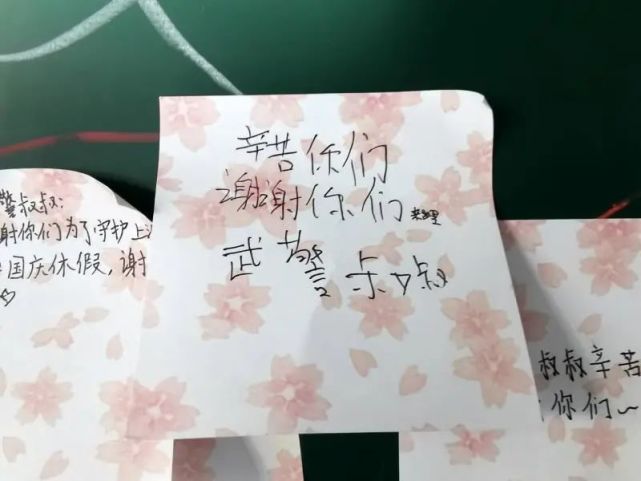 辛苦你们
谢谢你们
武警叔叔
警叔叔:
谢你们为了守护上
国庆休假,谢
叔叔辛苦
你们~